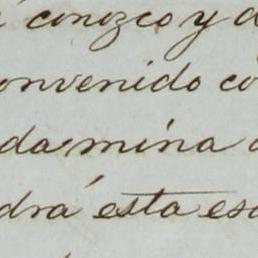 conozco y d
onvenido co
da mina
drá esta es